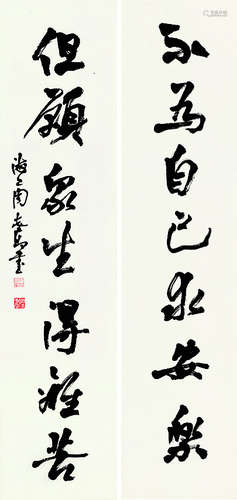 不為自己求安樂
但願眾生得離苦
海上周志高書